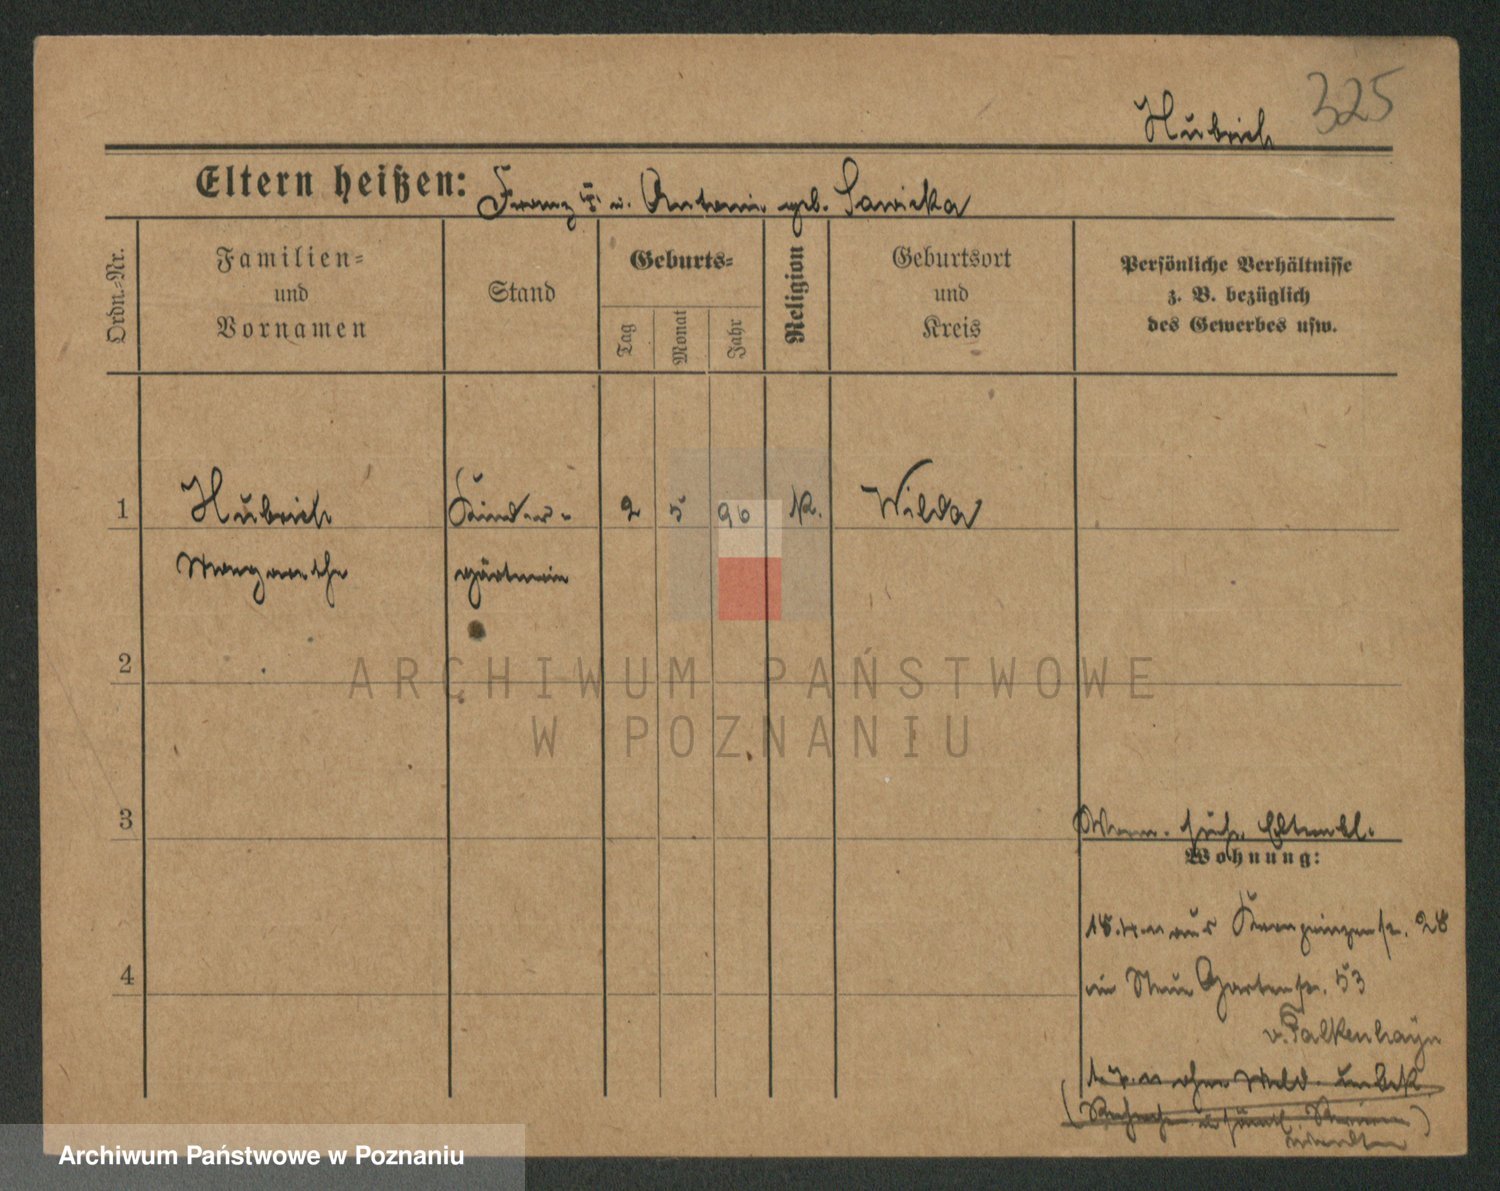 325
Hubrich
Eltern heißen: Franz † u. Antonie geb. Sawicka
Ordn.-Nr.
Familien- und Vornamen
Stand
Geburts-
Tag
Monat
Jahr
Religion
Geburtsort und Kreis
Persönliche Verhältnisse z. B. bezüglich des Gewerbes usw.
1 Hubrich Kinder- 2 5 96 K. Wilda
Margarethe gärtnerin
2
3
4
Wohnung:
aus Kronprinzenstr. 28
in Gartenstr. 53
v. Falkenhayn
ARCHIWUM PAŃSTWOWE
W POZNANIU
Archiwum Państwowe w Poznaniu